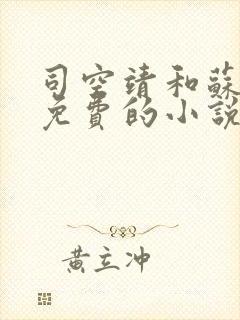 司空靖和蘇
免費的小說
黃立冲